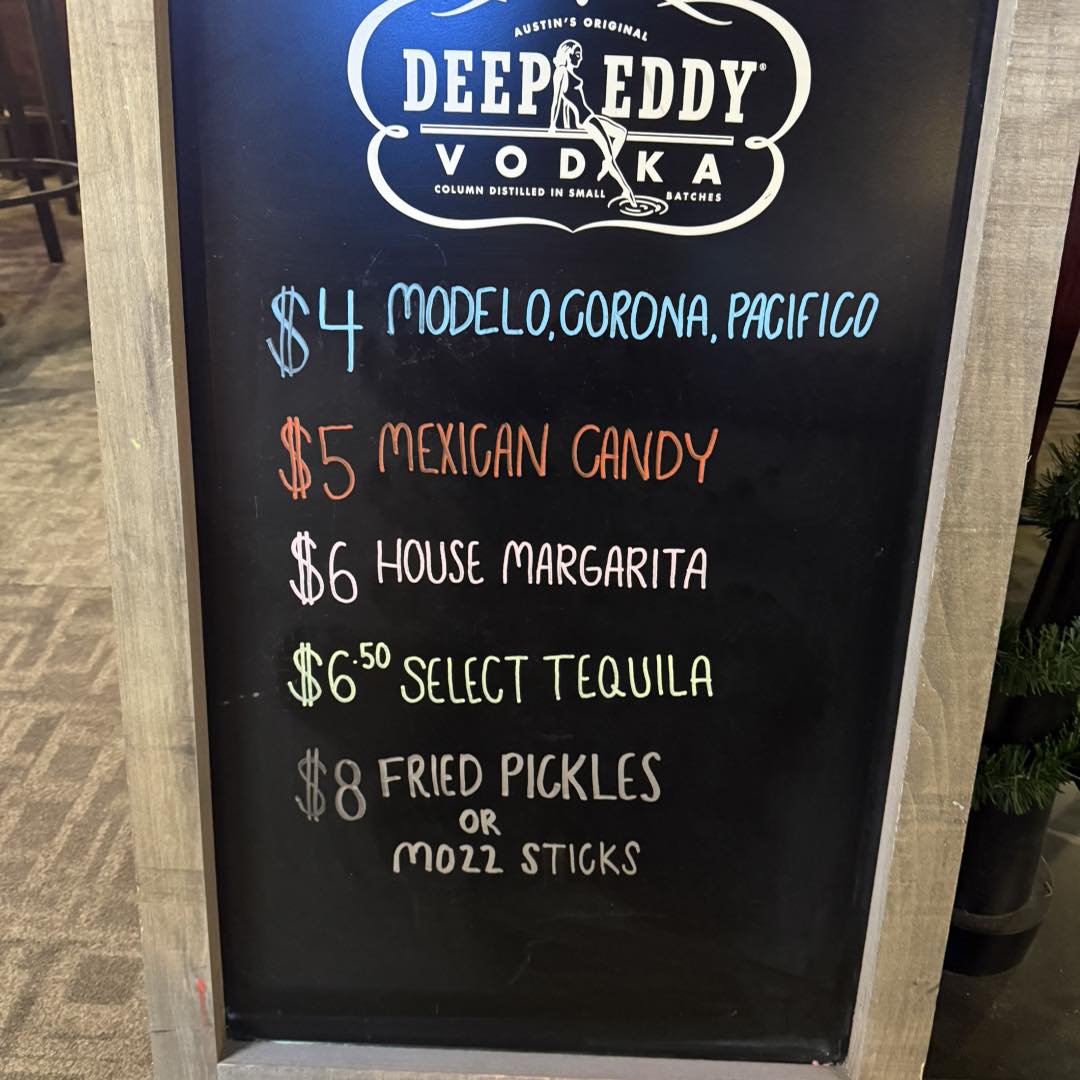 AUSTIN'S ORIGINAL
DEEP EDDY®
VODKA
COLUMN DISTILLED IN SMALL BATCHES
$4 MODELO, CORONA, PACIFICO
$5 MEXICAN CANDY
$6 HOUSE MARGARITA
$6.50 SELECT TEQUILA
$8 FRIED PICKLES
OR
MOZZ STICKS